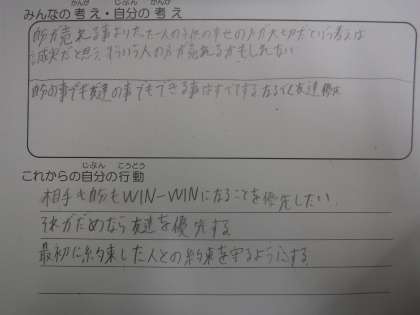 みんなの考え・自分の考え
自分が売れる事よりたった一人の子供の幸せの方が大切だという考えは
誠実だと思う。そういう人の方が売れるかもしれない
自分の事でも友達の事でもできる事はすべてする。なるべく友達優先
これからの自分の行動
相手も自分もWIN-WINになることを優先したい。
それがだめなら友達を優先する
最初に約束した人との約束を守るようにする。